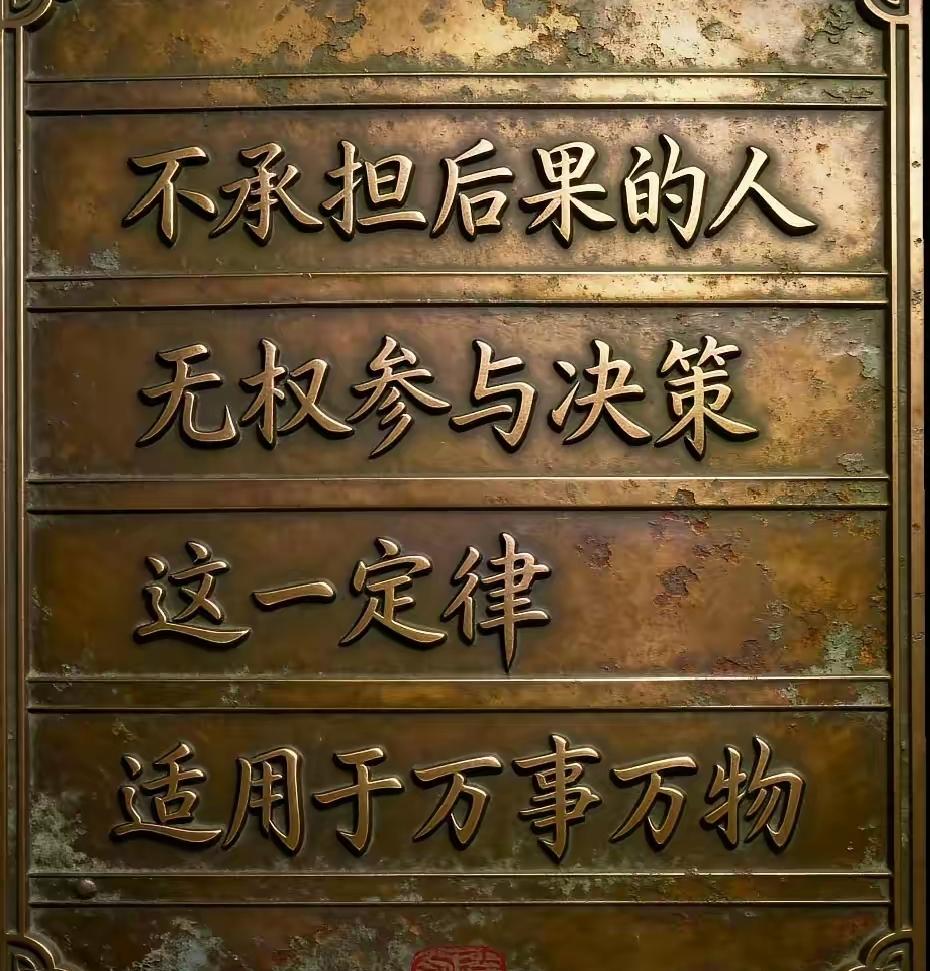 不承担后果的人
无权参与决策
这一定律
适用于万事万物